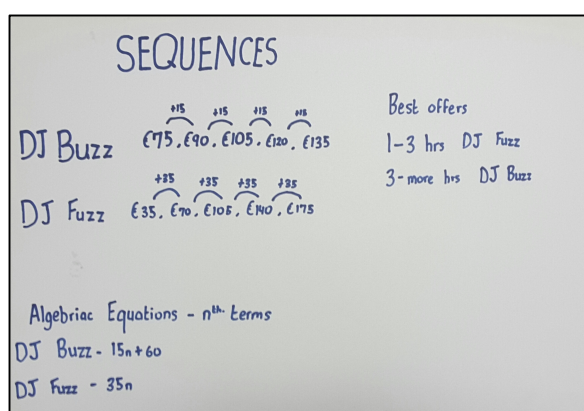 SEQUENCES
+15 +15 +15 +15
DJ Buzz €75, €90, €105, €120, €135
+35 +35 +35 +35
DJ Fuzz €35, €70, €105, €140, €175
Best offers
1-3 hrs DJ Fuzz
3-more hrs DJ Buzz
Algebriac Equations - nth. terms
DJ Buzz - 15n+60
DJ Fuzz - 35n